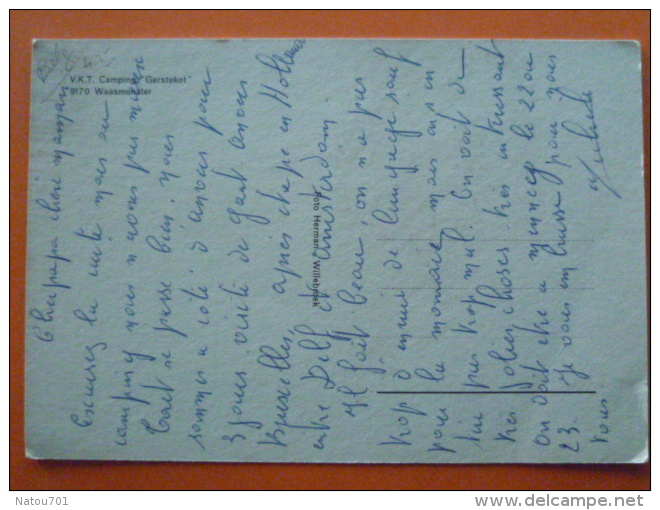 V.K.T. Camping "Gerstekot"
9170 Waasmunster
Foto Herman, Willebroek
Cher papa chère maman
Excusez la carte mais au
camping nous n'avons pas mieux
Tout se passe bien. nous
sommes a coté d'anvers pour
3 jours visite de Gand. anvers
Bruxelles, après étape en Hollande
entre Delft et Amsterdam.
Il fait beau, on n'a pas
trop d'ennuis de language sauf
pour la monnaie mais on s'en
tire pas trop mal. On voit de
très jolies choses très intéressantes
on doit être a Annecy le 22 ou
23. Je vous embrasse pour nous
tous
Natou701
delcampe.net